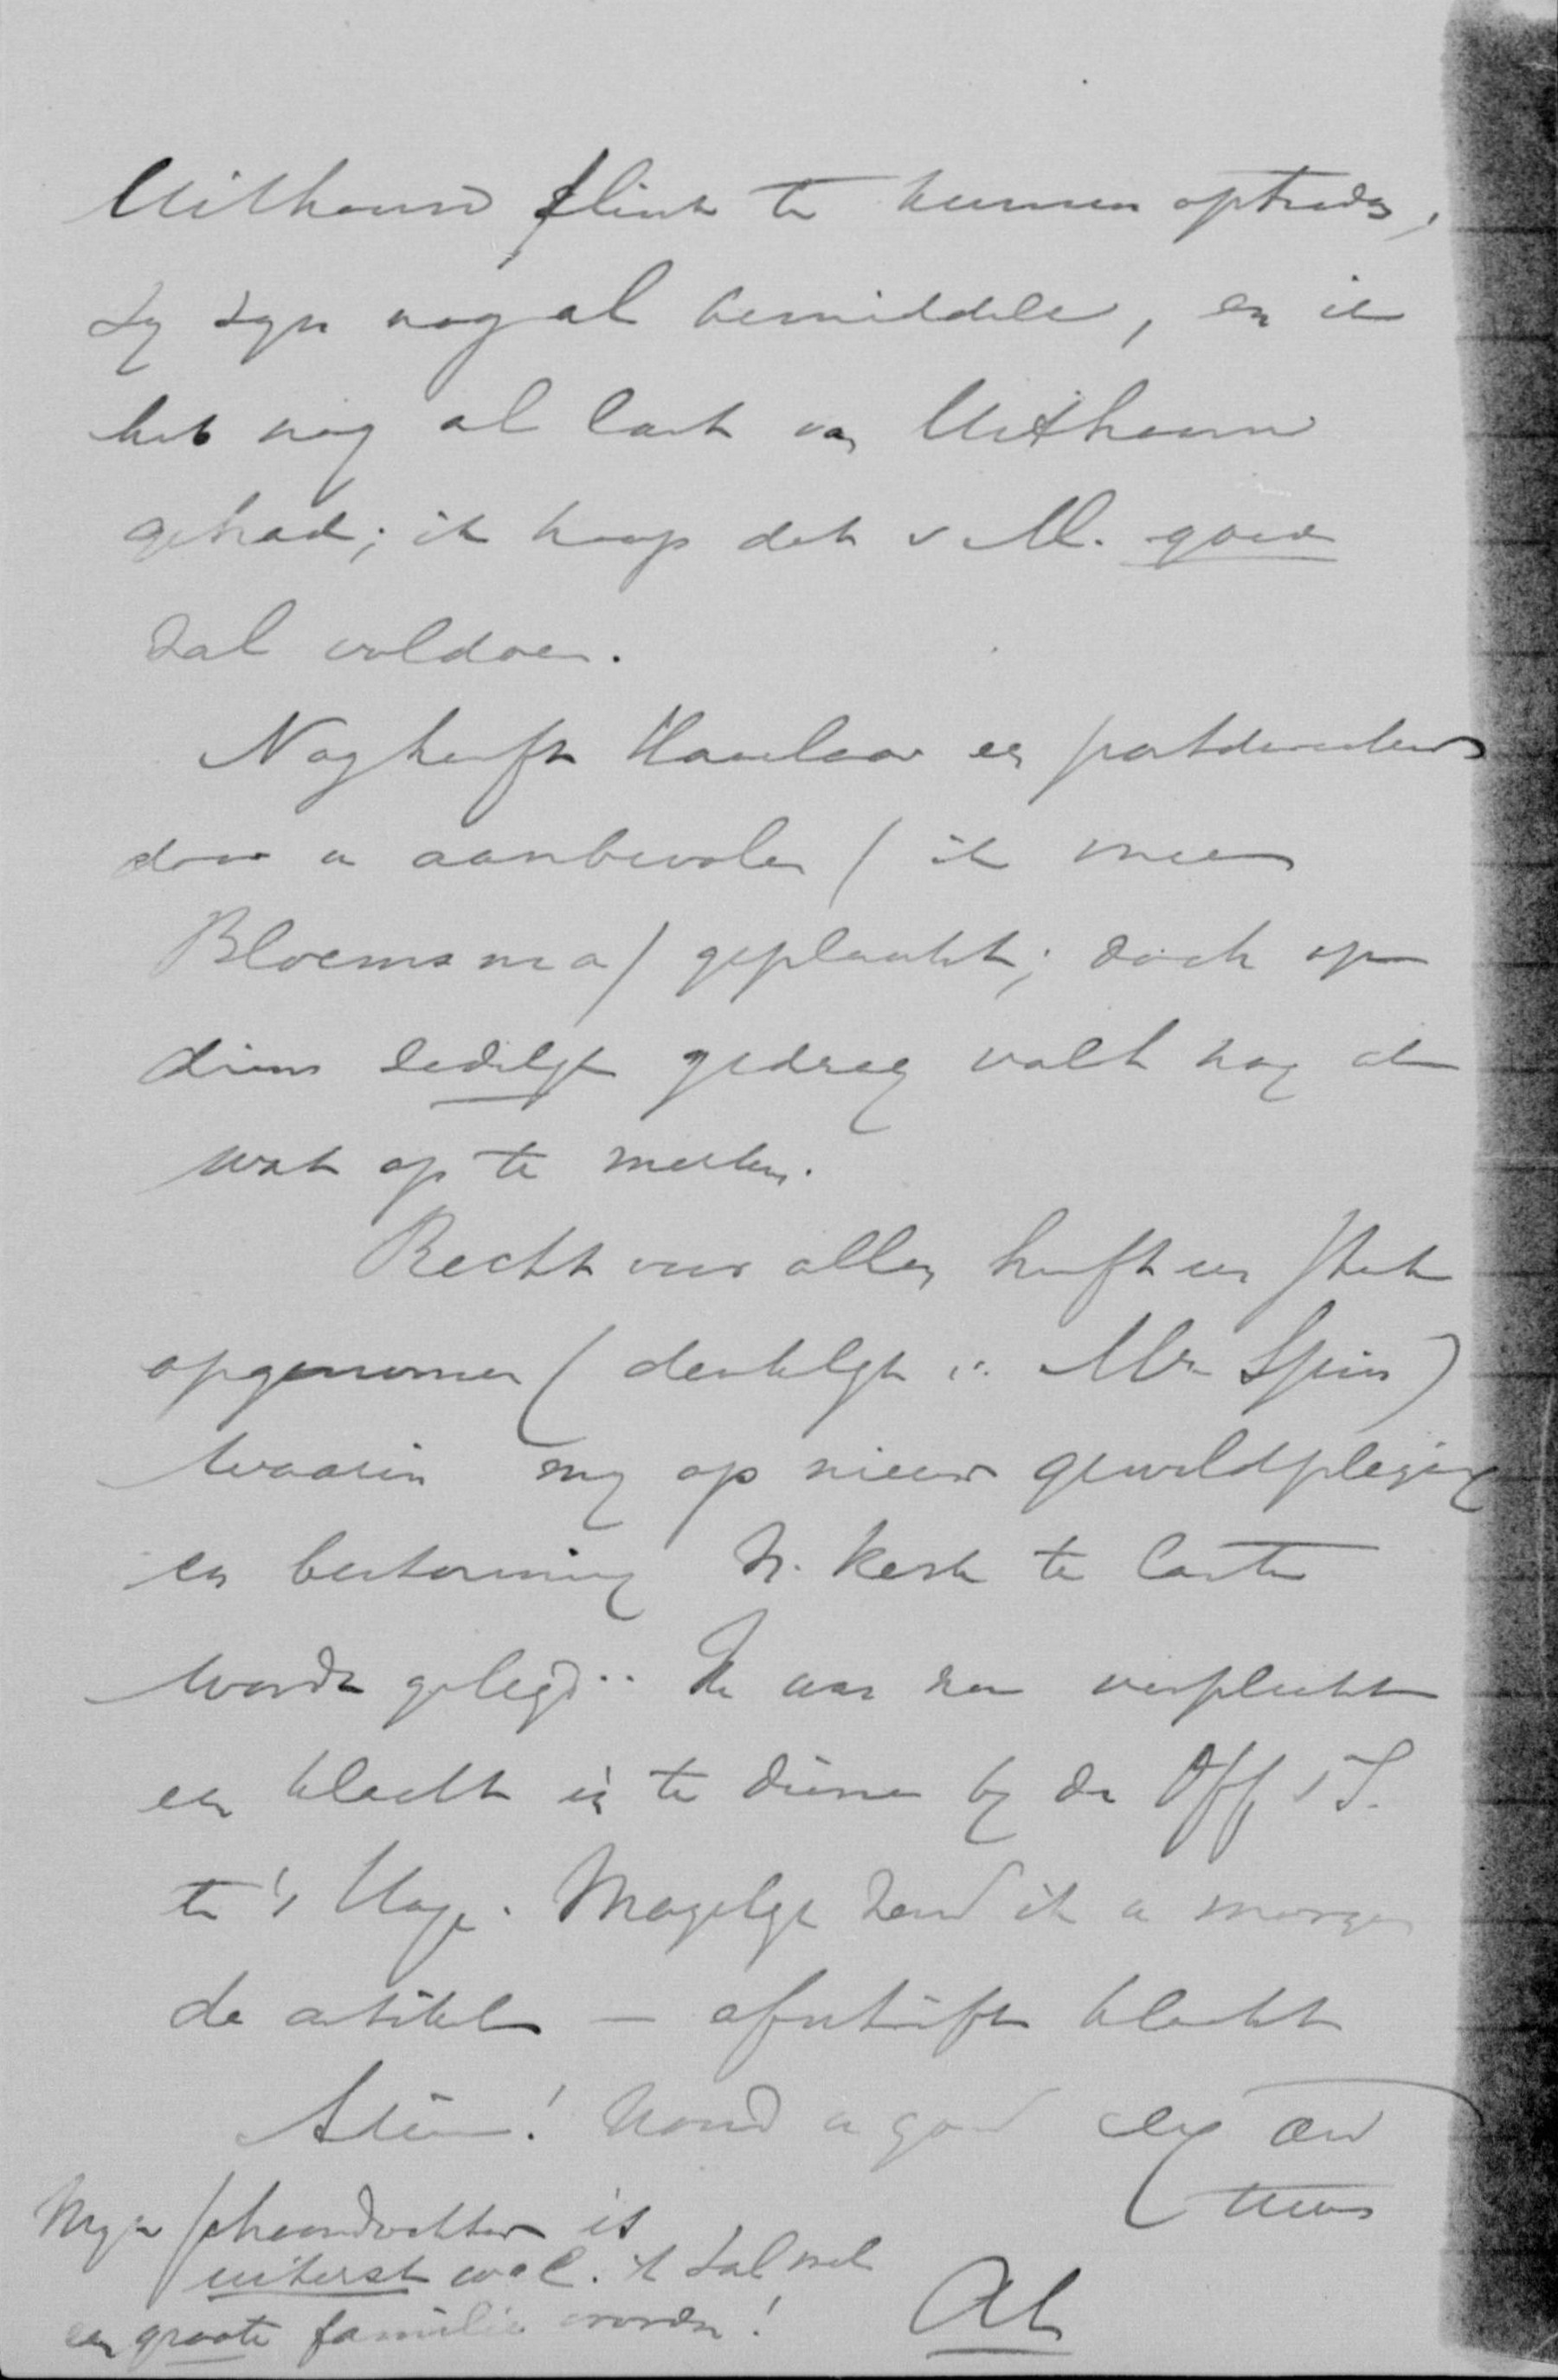 Uithoorn flink te kunnen optreden,
zy zyn nog al bemiddeld, en ik
heb nog al last van Uithoorn
gehad; ik hoop dat v M. goed
zal voldoen.
Nog heeft Havelaar een postdirecteur
door u aanbevolen / ik meen
Bloemsma / geplaatst; doch op
diens zedelyk gedrag valt nog al
wat op te merken.
Recht voor allen heeft een stuk
opgenomen ( denkelyk v. Mr Spin )
waarin my op nieuw geweldpleging
en bestorming N. Kerk te laste
wordt gelegd. Ik was dan verplicht
een klacht in te dienen by de Off v J.
te 's Hage. Mogelyk zend ik u morgen
de artikel — afschrift klacht
Adieu! Houd u goed
tuus
Myn schoondochter is
uiterst wel. 't zal wel
een groote familie worden!